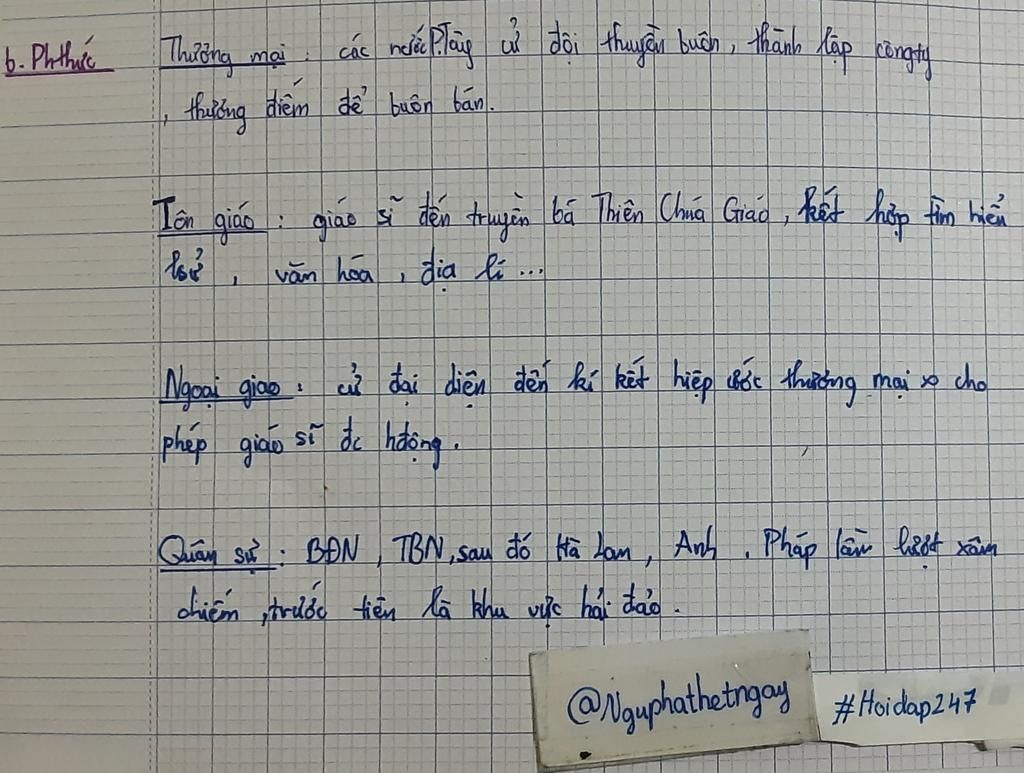 b. Phthức
Thương mại : các nước P.Tây cử đội thuyền buôn, thành lập công ty
, thương điếm để buôn bán.
Tôn giáo : giáo sĩ đến truyền bá Thiên Chúa Giáo, kết hợp tìm hiểu
lsử, văn hóa, địa lí ...
Ngoại giao : cử đại diện đến kí kết hiệp ước thương mại cho
phép giáo sĩ đc hđộng.
Quân sự : BĐN, TBN, sau đó Hà Lan, Anh, Pháp lần lượt xâm
chiếm, trước tiên là khu vực hải đảo.
@Nguphathetngay
#Hoidap247